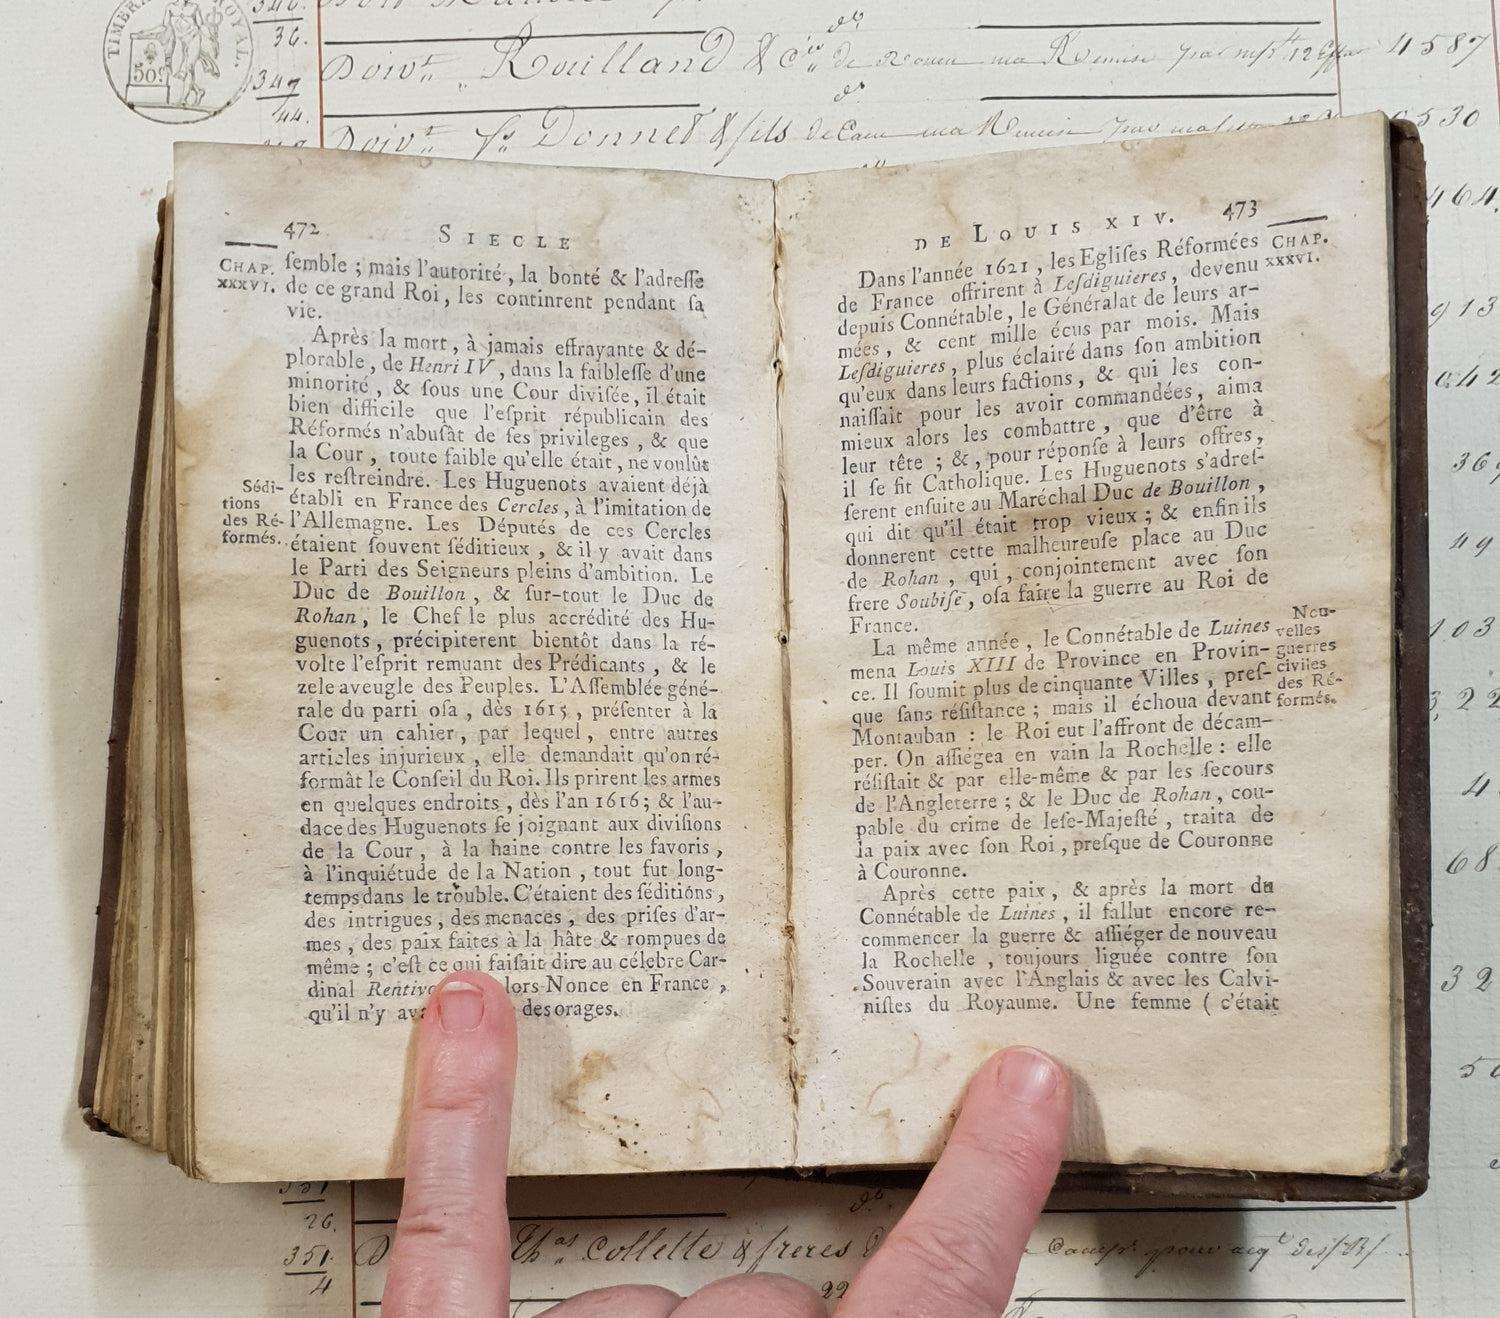 TIMBRE ROYAL.
50
346.
36.
347
44.
Doivt. Rouilland & Cie. de Rouen ma Remise par 4587
do
Doivt. Donnet & fils de Caen ma Remise par 0530
464.
913
042
369
49
103
3,22
68
32
472 SIECLE
CHAP. XXXVI.
ſemble ; mais l'autorité, la bonté & l'adreſſe
de ce grand Roi, les continrent pendant ſa
vie.
Après la mort, à jamais effrayante & dé-
plorable, de Henri IV, dans la faibleſſe d'une
minorité, & ſous une Cour diviſée, il était
bien difficile que l'eſprit républicain des
Réformés n'abuſât de ſes privileges, & que
la Cour, toute faible qu'elle était, ne voulût
les reſtreindre. Les Huguenots avaient déjà
établi en France des Cercles, à l'imitation de
l'Allemagne. Les Députés de ces Cercles
étaient ſouvent ſéditieux, & il y avait dans
le Parti des Seigneurs pleins d'ambition. Le
Duc de Bouillon, & ſur-tout le Duc de
Rohan, le Chef le plus accrédité des Hu-
guenots, précipiterent bientôt dans la ré-
volte l'eſprit remuant des Prédicants, & le
zele aveugle des Peuples. L'Aſſemblée géné-
rale du parti oſa, dès 1615, préſenter à la
Cour un cahier, par lequel, entre autres
articles injurieux, elle demandait qu'on ré-
formât le Conſeil du Roi. Ils prirent les armes
en quelques endroits, dès l'an 1616; & l'au-
dace des Huguenots ſe joignant aux diviſions
de la Cour, à la haine contre les favoris,
à l'inquiétude de la Nation, tout fut long-
temps dans le trouble. C'étaient des ſéditions,
des intrigues, des menaces, des priſes d'ar-
mes, des paix faites à la hâte & rompues de
même ; c'eſt ce qui faiſait dire au célebre Car-
dinal lors Nonce en France,
qu'il n'y des orages.
Sédi-
tions
des Ré-
formés.
DE LOUIS XIV. 473
CHAP. XXXVI.
Dans l'année 1621, les Egliſes Réformées
de France offrirent à Leſdiguieres, devenu
depuis Connétable, le Généralat de leurs ar-
mées, & cent mille écus par mois. Mais
Leſdiguieres, plus éclairé dans ſon ambition
qu'eux dans leurs factions, & qui les con-
naiſſait pour les avoir commandées, aima
mieux alors les combattre, que d'être à
leur tête ; &, pour réponſe à leurs offres,
il ſe fit Catholique. Les Huguenots s'adreſ-
ſerent enſuite au Maréchal Duc de Bouillon,
qui dit qu'il était trop vieux ; & enfin ils
donnerent cette malheureuſe place au Duc
de Rohan, qui, conjointement avec ſon
frere Soubiſe, oſa faire la guerre au Roi de
France.
La même année, le Connétable de Luines
mena Louis XIII de Province en Provin-
ce. Il ſoumit plus de cinquante Villes, preſ-
que ſans réſiſtance ; mais il échoua devant
Montauban : le Roi eut l'affront de décam-
per. On aſſiégea en vain la Rochelle : elle
réſiſtait & par elle-même & par les ſecours
de l'Angleterre ; & le Duc de Rohan, cou-
pable du crime de leſe-Majeſté, traita de
la paix avec ſon Roi, preſque de Couronne
à Couronne.
Après cette paix, & après la mort du
Connétable de Luines, il fallut encore re-
commencer la guerre & aſſiéger de nouveau
la Rochelle, toujours liguée contre ſon
Souverain avec l'Anglais & avec les Calvi-
niſtes du Royaume. Une femme ( c'était
Nou-
velles
guerres
civiles
des Ré-
formés.
26.
351.
4
Thas. Collette & freres
22